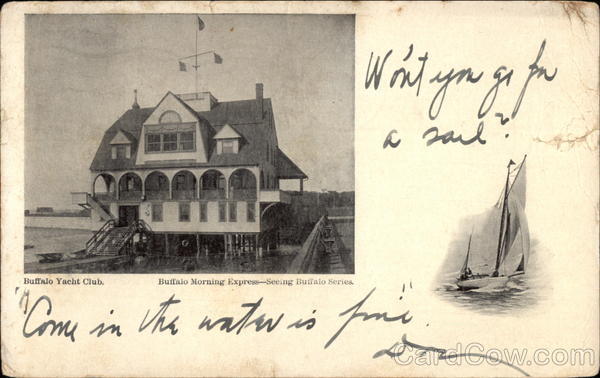 Won't you go for
a sail?
Buffalo Yacht Club.
Buffalo Morning Express—Seeing Buffalo Series.
"Come in the water is fine".
CardCow.com